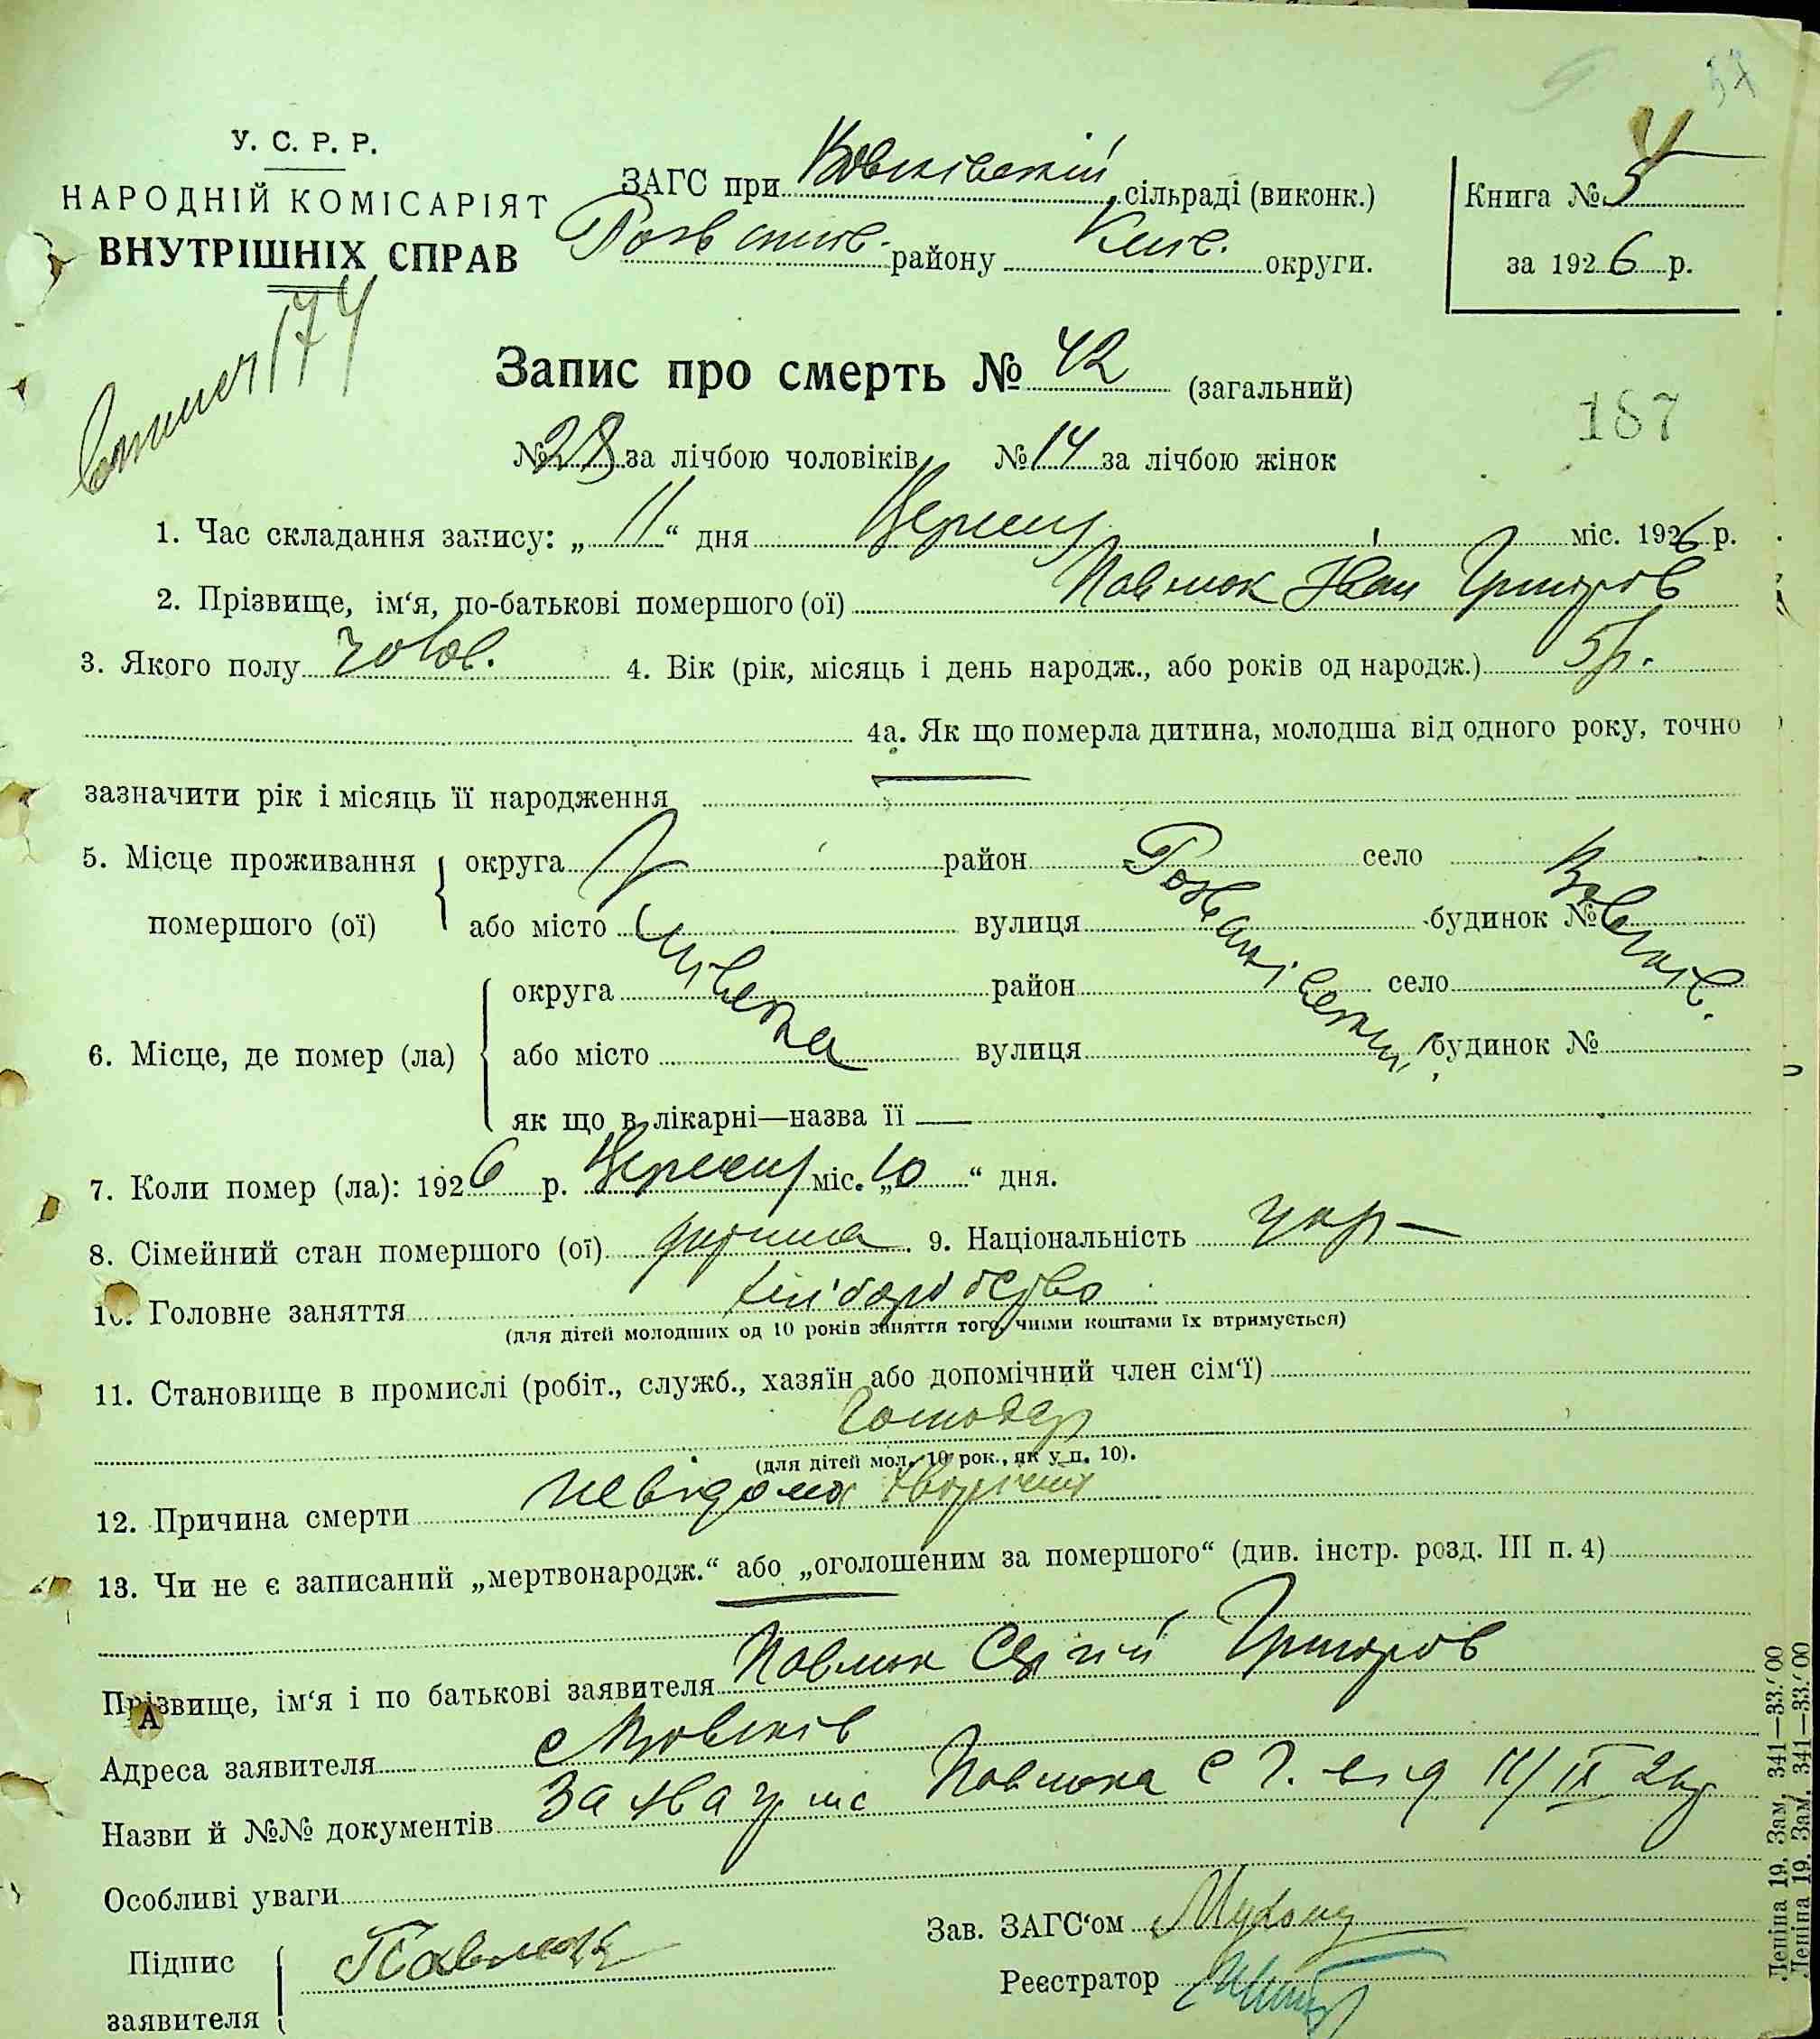 57
У. С. Р. Р.
НАРОДНІЙ КОМІСАРІЯТ
ВНУТРІШНІХ СПРАВ
ЗАГС при Вовківській сільраді (виконк.)
району Київ. округи.
Книга № 5
за 1926 р.
174
Запис про смерть № 42 (загальний)
187
№ 28 за лічбою чоловіків № 14 за лічбою жінок
1. Час складання запису: „ 11 “ дня Вересня міс. 1926 р.
2. Прізвище, ім‘я, по-батькові помершого (ої) Павлюк Іван Григоров
3. Якого полу чолов. 4. Вік (рік, місяць і день народж., або років од народж.) 5 р.
4а. Як що померла дитина, молодша від одного року, точно
зазначити рік і місяць її народження
5. Місце проживання помершого (ої) округа район село
або місто вулиця будинок №
6. Місце, де помер (ла) округа район село
або місто вулиця будинок №
як що в лікарні—назва її —
7. Коли помер (ла): 1926 р. Вересня міс. „ 10 “ дня.
8. Сімейний стан помершого (ої) дитина 9. Національність укр —
10. Головне заняття хліборобство
(для дітей молодших од 10 років заняття того, чиїми коштами їх втримується)
11. Становище в промислі (робіт., служб., хазяїн або допомічний член сім‘ї)
Господар
(для дітей мол. 10 рок., як у п. 10).
12. Причина смерти невідома
13. Чи не є записаний „мертвонародж.“ або „оголошеним за помершого“ (див. інстр. розд. III п. 4)
Прізвище, ім‘я і по батькові заявителя Павлюк Сергій Григоров
Адреса заявителя с
Назви й №№ документів Заява гр-на Павлюка С Г. від 11/IX 26 р.
Особливі уваги
Підпис заявителя Павлюк
Зав. ЗАГС‘ом
Реєстратор
Леніна 19. Зам. 341—33.'00
Леніна 19. Зам. 341—33.'00